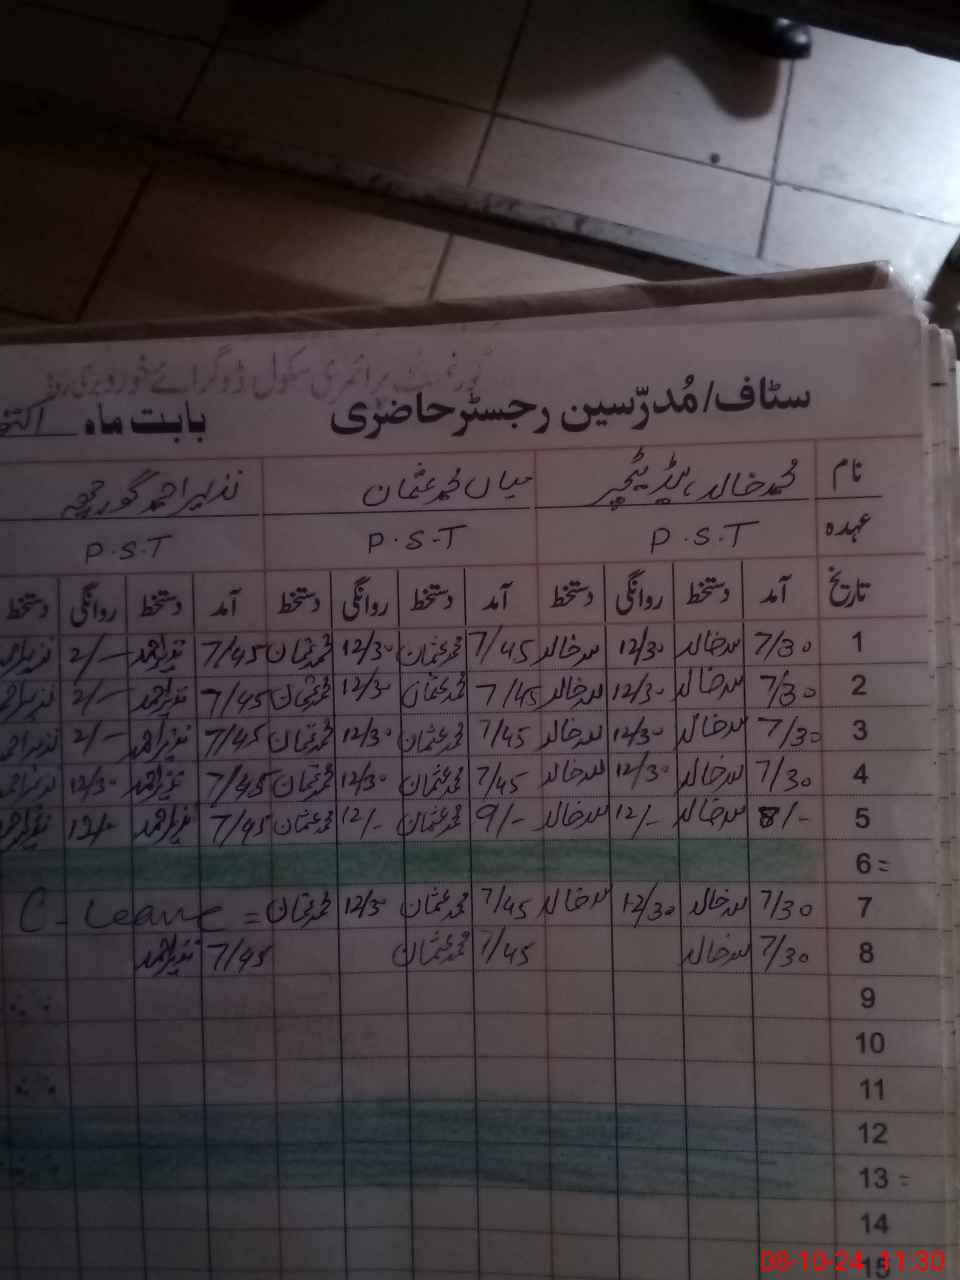 گورنمنٹ پرائمری سکول ڈوگرائے خورد
سٹاف/مُدرّسین رجسٹر حاضری بابت ماہ
نام محمد خالد، ہیڈ ٹیچر میاں محمد عثمان نذیر احمد
عہدہ P.S.T P.S.T P.S.T
تاریخ آمد دستخط روانگی دستخط آمد دستخط روانگی دستخط آمد دستخط روانگی دستخط
1 7/30 محمد خالد 12/30 محمد خالد 7/45 محمد عثمان 12/30 محمد عثمان 7/45 نذیر احمد 2/- نذیر احمد
2 7/30 محمد خالد 12/30 محمد خالد 7/45 محمد عثمان 12/30 محمد عثمان 7/45 نذیر احمد 2/- نذیر احمد
3 7/30 محمد خالد 12/30 محمد خالد 7/45 محمد عثمان 12/30 محمد عثمان 7/45 نذیر احمد 2/- نذیر احمد
4 7/30 محمد خالد 12/30 محمد خالد 7/45 محمد عثمان 12/30 محمد عثمان 7/45 نذیر احمد 12/30 نذیر احمد
5 8/- محمد خالد 12/- محمد خالد 9/- محمد عثمان 12/- محمد عثمان 7/45 نذیر احمد 12/- نذیر احمد
6 =
7 7/30 محمد خالد 12/30 محمد خالد 7/45 محمد عثمان 12/30 محمد عثمان = C-Leave
8 7/30 محمد خالد 7/45 محمد عثمان 7/45 نذیر احمد
9
10
11
12
13 =
14
15
08-10-24 11:30